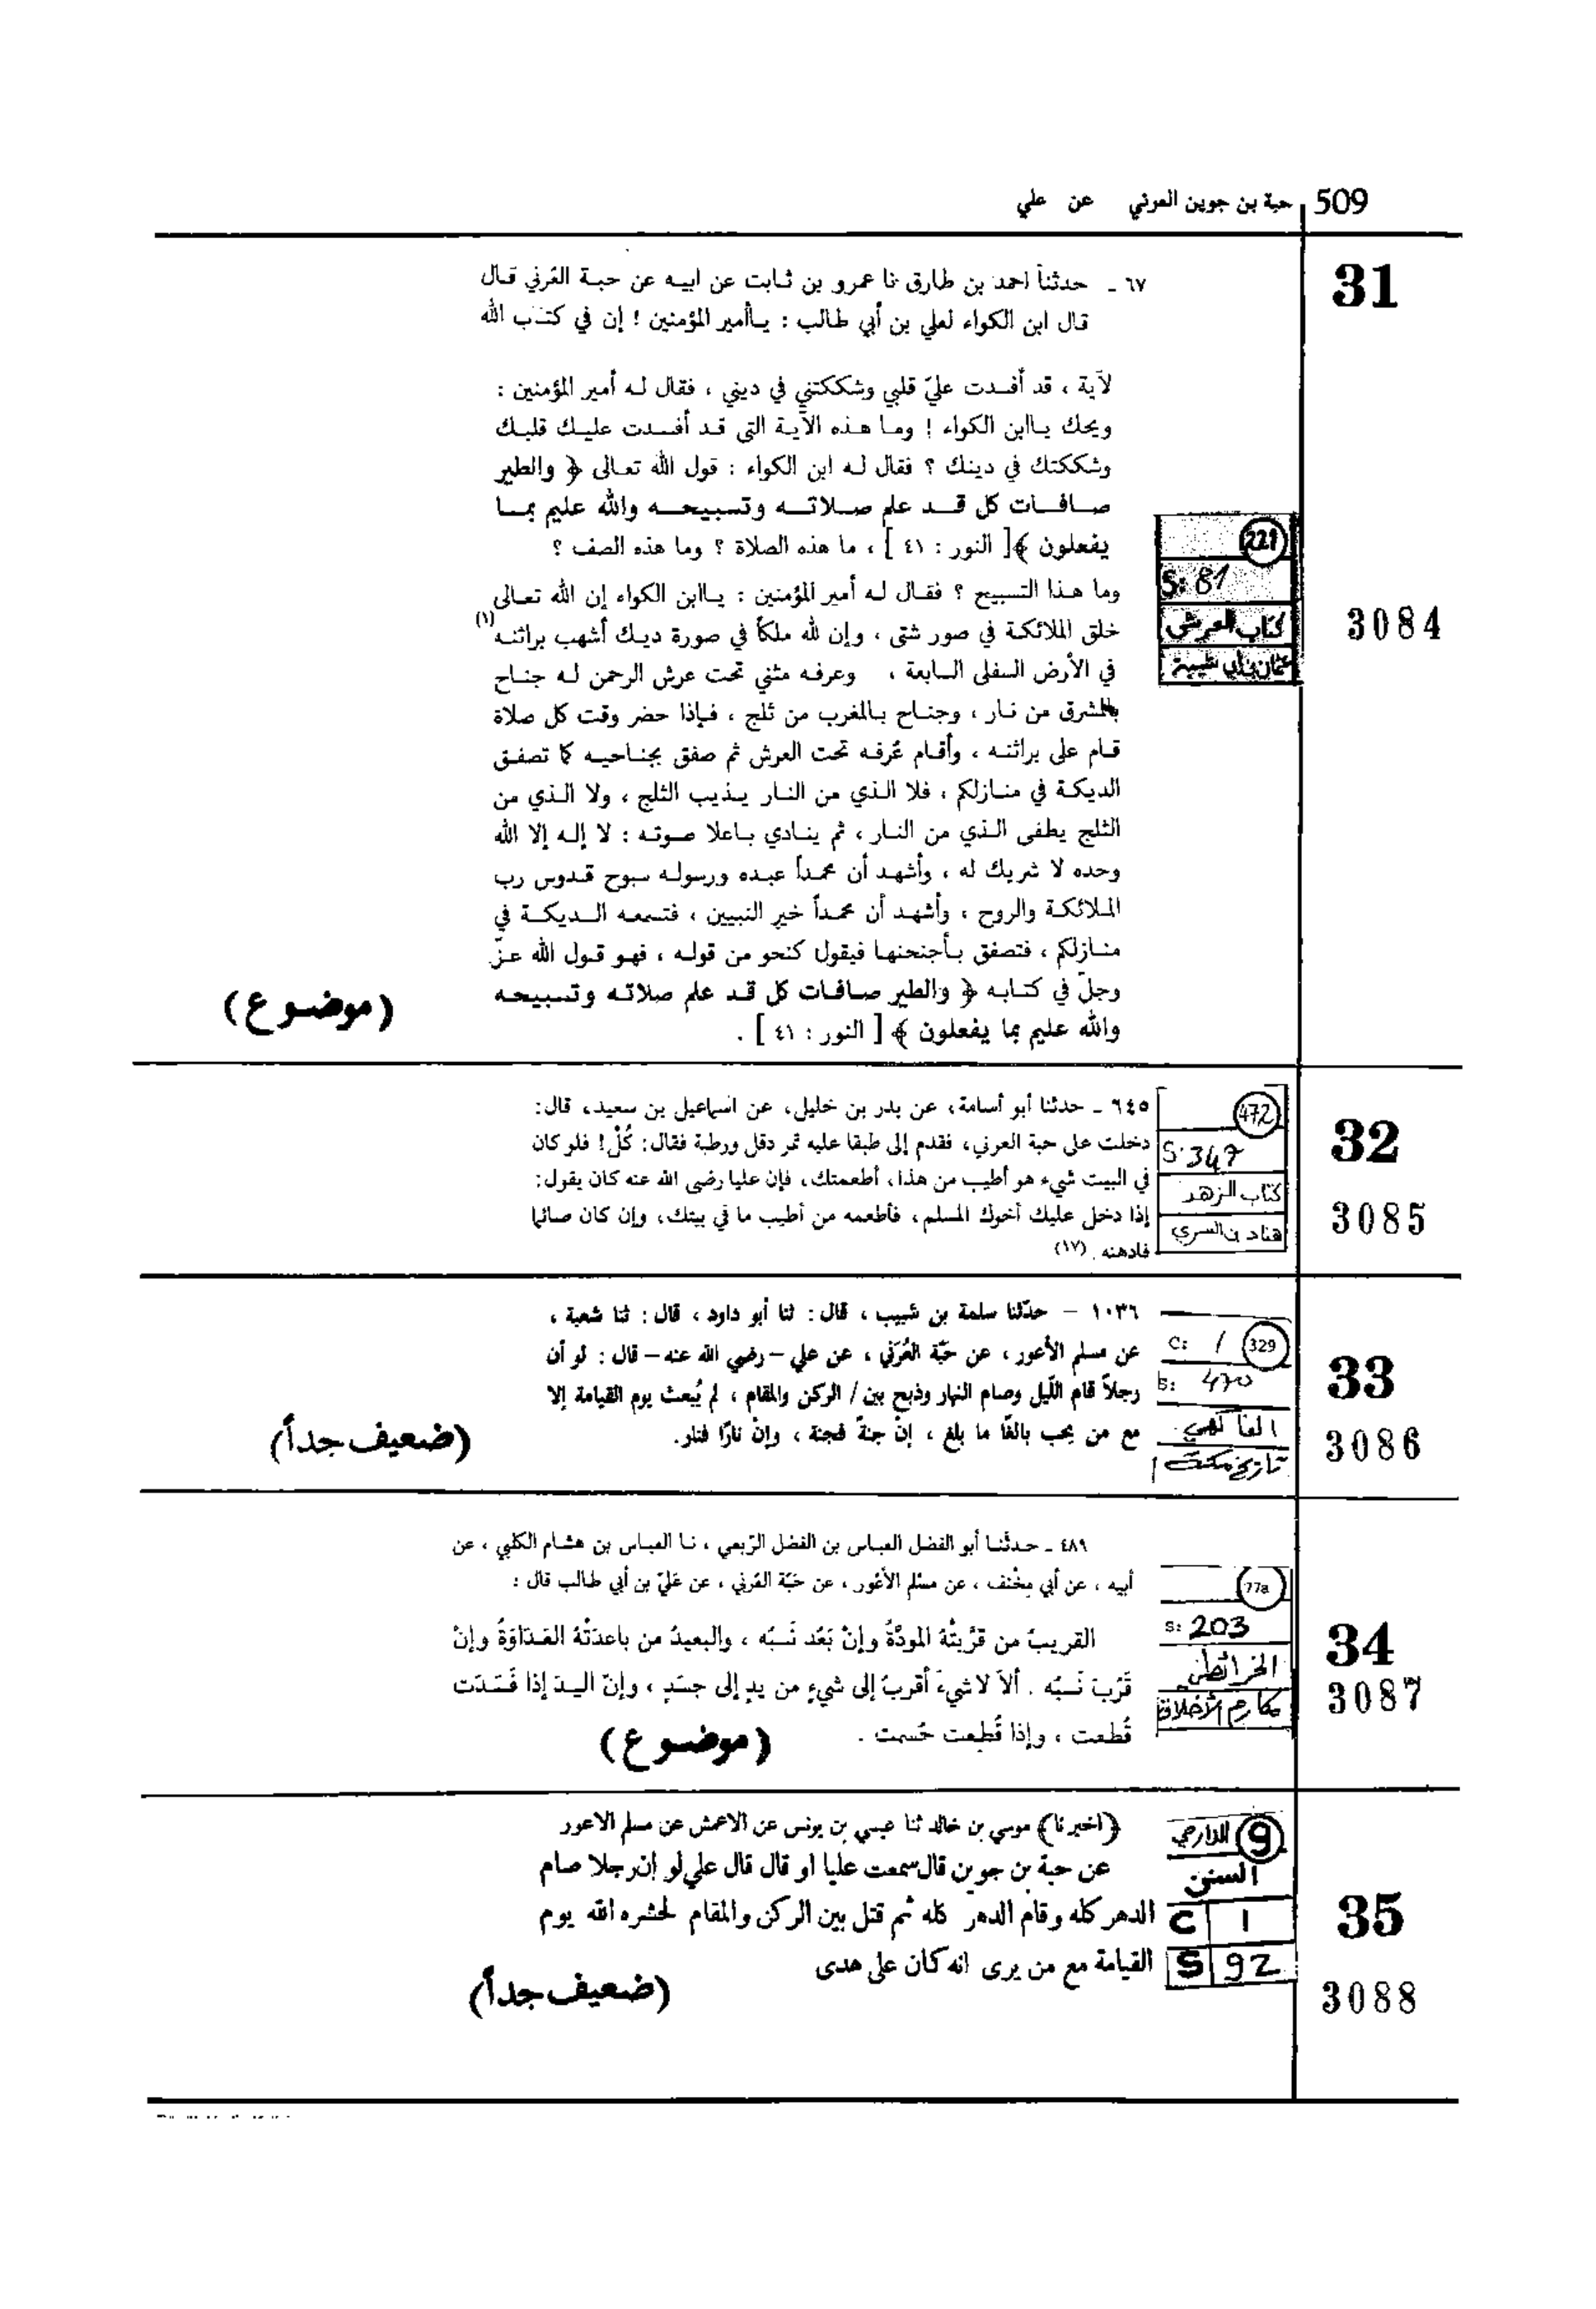 509 حبة بن جوين العرني عن علي
31
٦٧ ـ حدثنا احمد بن طارق نا عمرو بن ثابت عن ابيه عن حبة العُرني قال
قال ابن الكواء لعلي بن أبي طالب : ياأمير المؤمنين ! إن في كتاب الله
لآية ، قد أفسدت عليّ قلبي وشككتني في ديني ، فقال له أمير المؤمنين :
ويحك ياابن الكواء ! وما هذه الآية التي قد أفسدت عليك قلبك
وشككتك في دينك ؟ فقال له ابن الكواء : قول الله تعالى ﴿ والطير
صافات كل قد علم صلاته وتسبيحه والله عليم بما
يفعلون ﴾[ النور : ٤١ ] ، ما هذه الصلاة ؟ وما هذه الصف ؟
وما هذا التسبيح ؟ فقال له أمير المؤمنين : ياابن الكواء إن الله تعالى
خلق الملائكة في صور شتى ، وإن لله ملكاً في صورة ديك أشهب براثنه (١)
في الأرض السفلى السابعة ، وعرفه مثني تحت عرش الرحمن له جناح
بالمشرق من نار ، وجناح بالمغرب من ثلج ، فإذا حضر وقت كل صلاة
قام على براثنه ، وأقام عُرفه تحت العرش ثم صفق بجناحيه كما تصفق
الديكة في منازلكم ، فلا الذي من النار يذيب الثلج ، ولا الذي من
الثلج يطفى الذي من النار ، ثم ينادي باعلا صوته : لا إله إلا الله
وحده لا شريك له ، وأشهد أن محمداً عبده ورسوله سبوح قدوس رب
الملائكة والروح ، وأشهد أن محمداً خير النبيين ، فتسمعه الديكة في
منازلكم ، فتصفق بأجنحتها فيقول كنحو من قوله ، فهو قول الله عزّ
وجلّ في كتابه ﴿ والطير صافات كل قد علم صلاته وتسبيحه
والله عليم بما يفعلون ﴾ [ النور : ٤١ ] .
(موضوع)
221
S: 81
كتاب العرش
عثمان بن أبي شيبة
3084
32
3085
472
S: 347
كتاب الزهد
هناد بن السري
٦٤٥ ـ حدثنا أبو أسامة، عن بدر بن خليل، عن اسماعيل بن سعيد، قال:
دخلت على حبة العرني، فقدم إلى طبقا عليه تمر دقل ورطبة فقال: كُلْ! فلو كان
في البيت شيء هو أطيب من هذا، أطعمتك، فإن عليا رضى الله عنه كان يقول:
إذا دخل عليك أخوك المسلم، فأطعمه من أطيب ما في بيتك، وإن كان صائما
فادهنه. (١٧)
33
3086
329
C: /
S: 470
الفاكهي
تاريخ مكة
١٠٣٦ – حدّثنا سلمة بن شبيب ، قال : ثنا أبو داود ، قال : ثنا شعبة ،
عن مسلم الأعور ، عن حَبّة العُرَني ، عن علي – رضي الله عنه – قال : لو أن
رجلاً قام اللّيل وصام النهار وذبح بين / الركن والمقام ، لم يُبعث يوم القيامة إلا
مع من يحب بالغًا ما بلغ ، إنْ جنةً فجنة ، وإنْ نارًا فنار.
(ضعيف جداً)
34
3087
77a
S: 203
الخرائطي
مكارم الأخلاق
٤٨٩ ـ حدثنا أبو الفضل العباس بن الفضل الرّبعي ، نا العباس بن هشام الكلبي ، عن
أبيه ، عن أبي مِخْنف ، عن مسْلم الأعْور ، عن حَبّة العُرني ، عن عَليّ بن أبي طالب قال :
القريبُ من قرَّبتْهُ المودَّةُ وإنْ بَعُد نَسَبُه ، والبعيدُ من باعدَتْهُ العَدَاوَةُ وإنْ
قَرُبَ نَسَبُه . ألاَ لا شيءَ أقربُ إلى شيءٍ من يدٍ إلى جسَدٍ ، وإنّ اليدَ إذا فَسَدَت
قُطعت ، وإذا قُطِعت حُسمت .
(موضوع)
35
3088
9 الدارمي
السنن
C 1
S 92
(اخبرنا) موسي بن خالد ثنا عيسي بن يونس عن الاعمش عن مسلم الاعور
عن حبة بن جوين قال سمعت عليا او قال قال علي لو ان رجلا صام
الدهر كله وقام الدهر كله ثم قتل بين الركن والمقام لحشره الله يوم
القيامة مع من يرى انه كان على هدى
(ضعيف جداً)